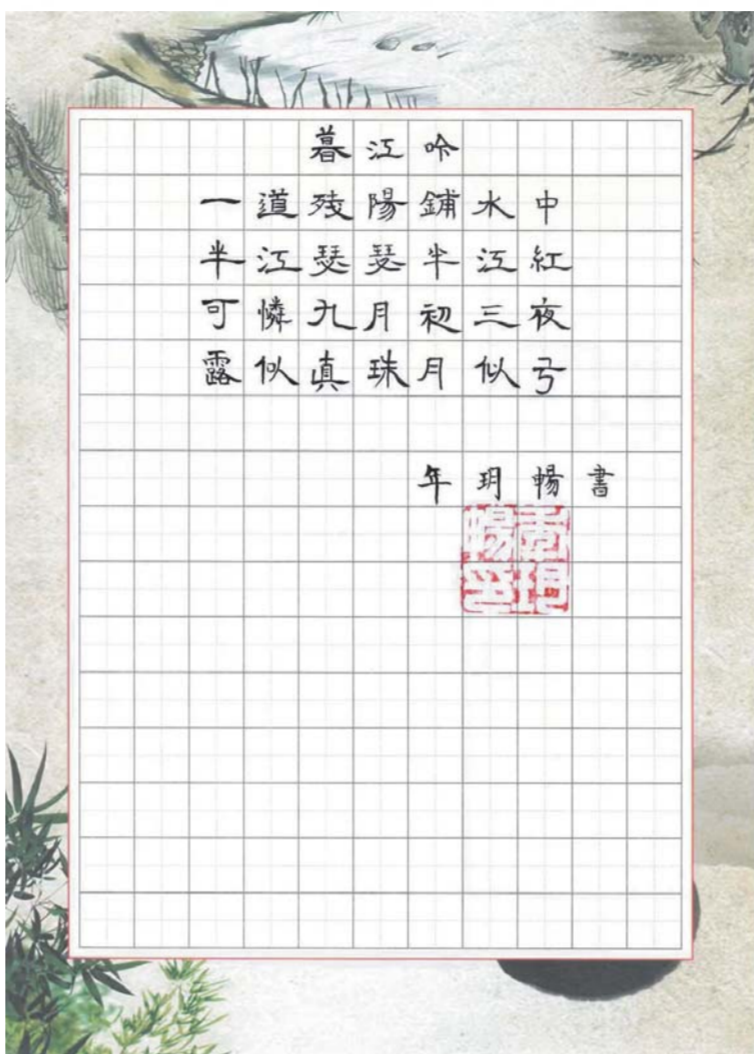 暮江吟
一道殘陽鋪水中
半江瑟瑟半江紅
可憐九月初三夜
露似真珠月似弓
年玥暢書
年玥暢印